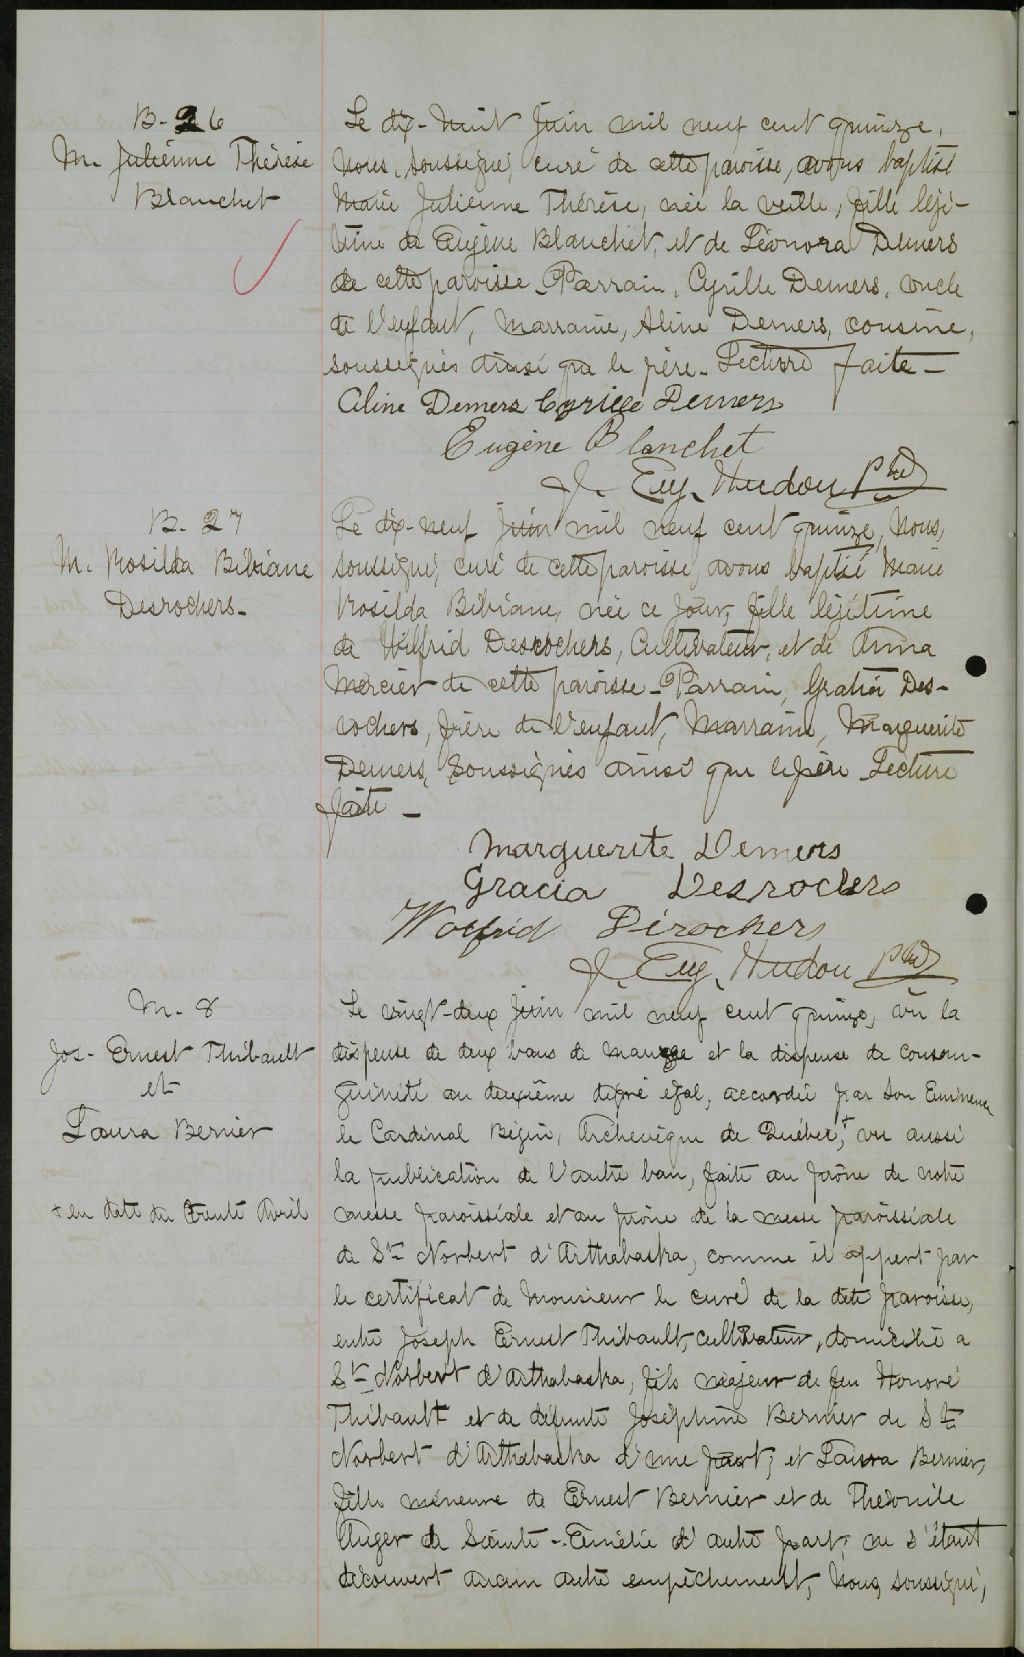 B-26
M. Julienne Thérèse
Blanchet
Le dix-huit juin mil neuf cent quinze,
nous, soussigné, curé de cette paroisse, avons baptisé
Marie Julienne Thérèse, née la veille, fille légi-
time de Eugène Blanchet, et de Léonora Demers
de cette paroisse - Parrain, Cyrille Demers, oncle
de l'enfant, Marraine, Aline Demers, cousine,
soussignés ainsi que le père - Lecture faite -
Aline Demers Cyrille Demers
Eugène Blanchet
J. Eug. Hudon Ptre
B. 27
M. Rosilda Bibiane
Desrochers -
Le dix-neuf juin mil neuf cent quinze, Nous,
soussigné, curé de cette paroisse, avons baptisé Marie
Rosilda Bibiane, née ce jour, fille légitime
de Wilfrid Desrochers, Cultivateur, et de Anna
Mercier de cette paroisse - Parrain, Gratia Des-
rochers, frère de l'enfant, Marraine, Marguerite
Demers, soussignés ainsi que le père Lecture
faite -
Marguerite Demers
Gracia Desrochers
Wolfrid Dérochers
J. Eug. Hudon Ptre
M. 8
Jos- Ernest Thibault
et
Laura Bernier
+ en date du trente Avril
Le vingt-deux juin mil neuf cent quinze, vu la
dispense de deux bans de mariage et la dispense de consan-
guinité au deuxième degré égal, accordée par Son Eminence
le Cardinal Bégin, Archevêque de Québec, + vu aussi
la publication de l'autre ban, faite au prône de notre
messe paroissiale et au prône de la messe paroissiale
de St Norbert d'Arthabaska, comme il appert par
le certificat de Monsieur le curé de la dite paroisse,
entre Joseph Ernest Thibault, cultivateur, domicilié à
St Norbert d'Arthabaska, fils majeur de feu Honoré
Thibault et de défunte Joséphine Bernier de St
Norbert d'Arthabaska d'une part; et Laura Bernier,
fille mineure de Ernest Bernier et de Théonile
Auger de Sainte-Amélie d'autre part; ne s'étant
découvert aucun autre empêchement, Nous, soussigné,